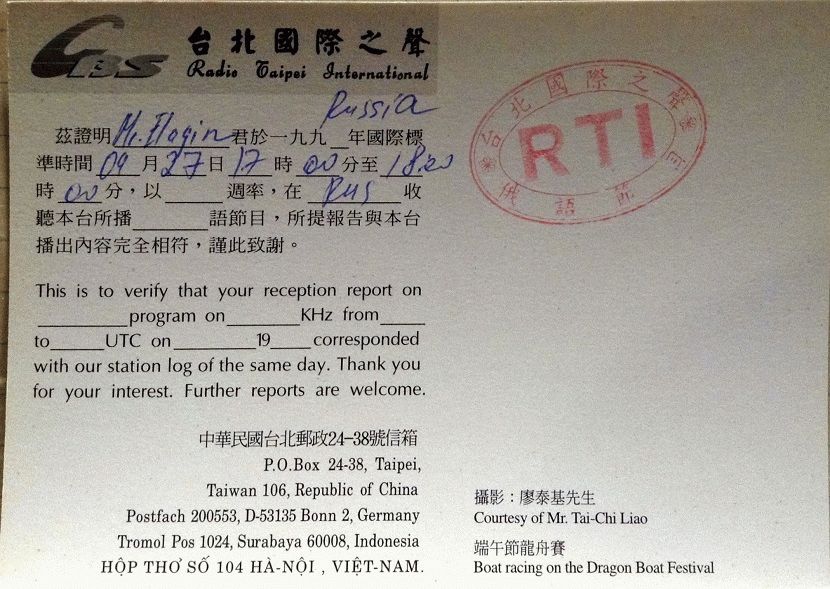 CBS 台北國際之聲
Radio Taipei International
Russia
茲證明 Mr. 君於一九九__年國際標
準時間 09 月 27 日 17 時 00 分至 18.00
時 00 分，以______週率，在 RUS 收
聽本台所播________語節目，所提報告與本台
播出內容完全相符，謹此致謝。
This is to verify that your reception report on
__________program on________KHz from_____
to______UTC on_________19____corresponded
with our station log of the same day. Thank you
for your interest. Further reports are welcome.
中華民國台北郵政24-38號信箱
P.O.Box 24-38, Taipei,
Taiwan 106, Republic of China
Postfach 200553, D-53135 Bonn 2, Germany
Tromol Pos 1024, Surabaya 60008, Indonesia
HỘP THƠ SỐ 104 HÀ-NỘI , VIỆT-NAM.
台北國際之聲
RTI
俄語節目
攝影：廖泰基先生
Courtesy of Mr. Tai-Chi Liao
端午節龍舟賽
Boat racing on the Dragon Boat Festival